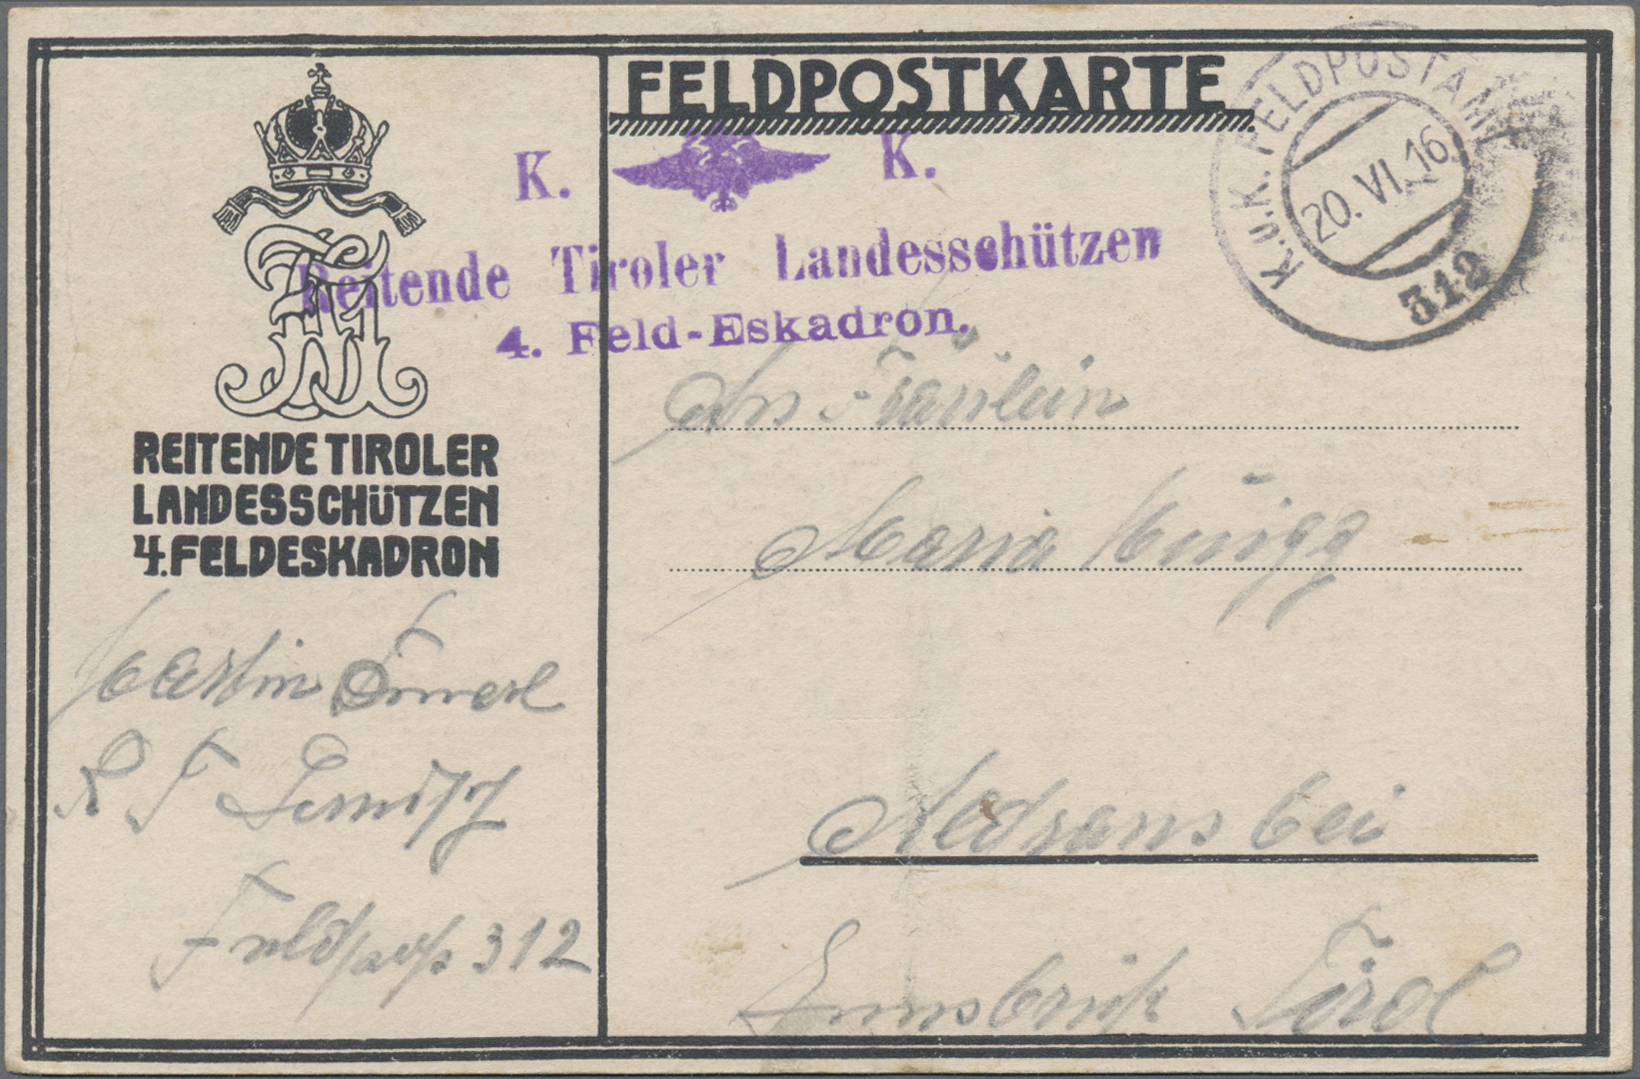 FELDPOSTKARTE
K.U.K. FELDPOSTAMT
20. VI. 16
312
K. K.
Reitende Tiroler Landesschützen
4. Feld-Eskadron.
FJI
REITENDE TIROLER
LANDESSCHÜTZEN
4. FELDESKADRON
Martin
R T
Feldpost 312
An Fräulein
Maria
Aldrans bei
Innsbruck Tirol